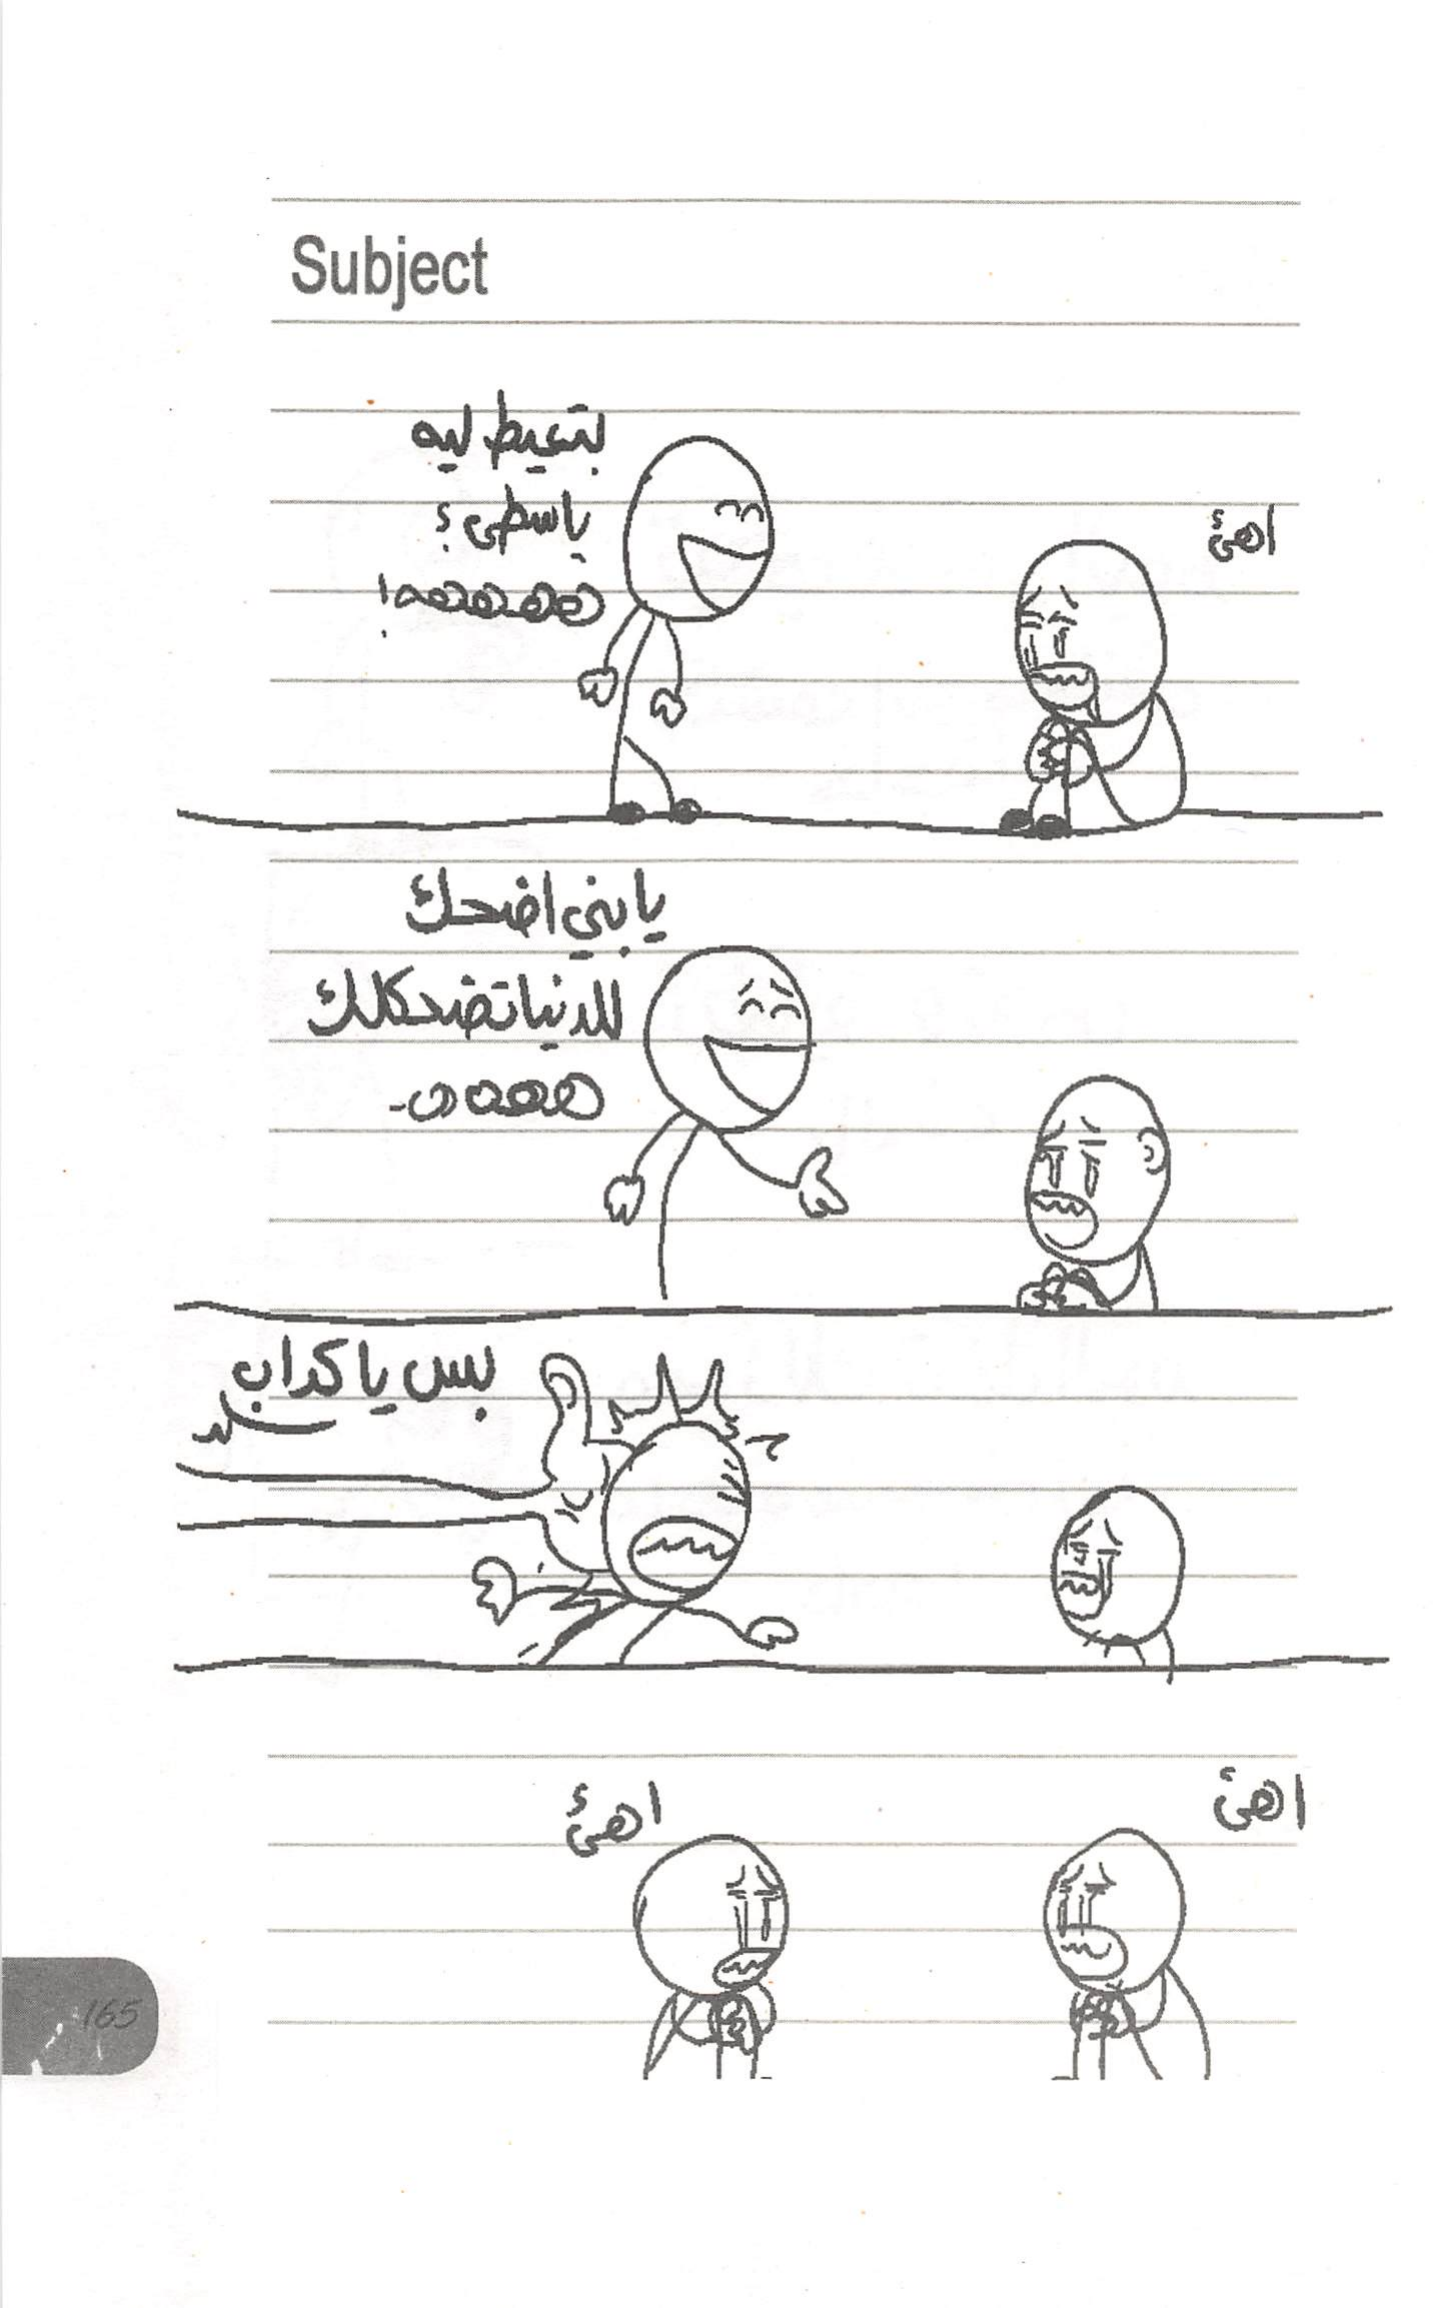 Subject
اهئ
بتعيط ليه
ياسطى؟
هههههه!
يابني اضحك
للدنيا تضحكلك
ههههه
بس يا كداب
اهئ
اهئ
165